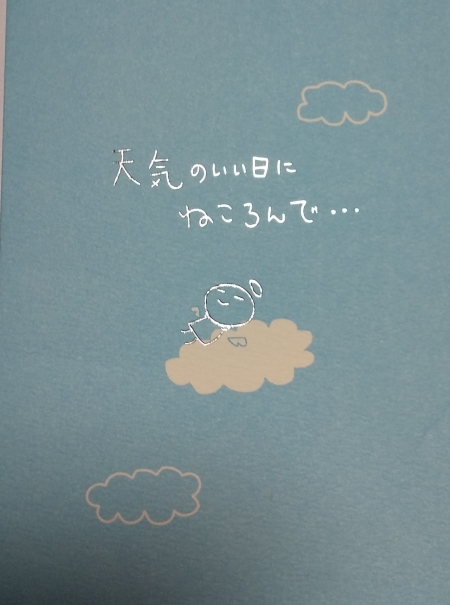 天気のいい日に
ねころんで・・・